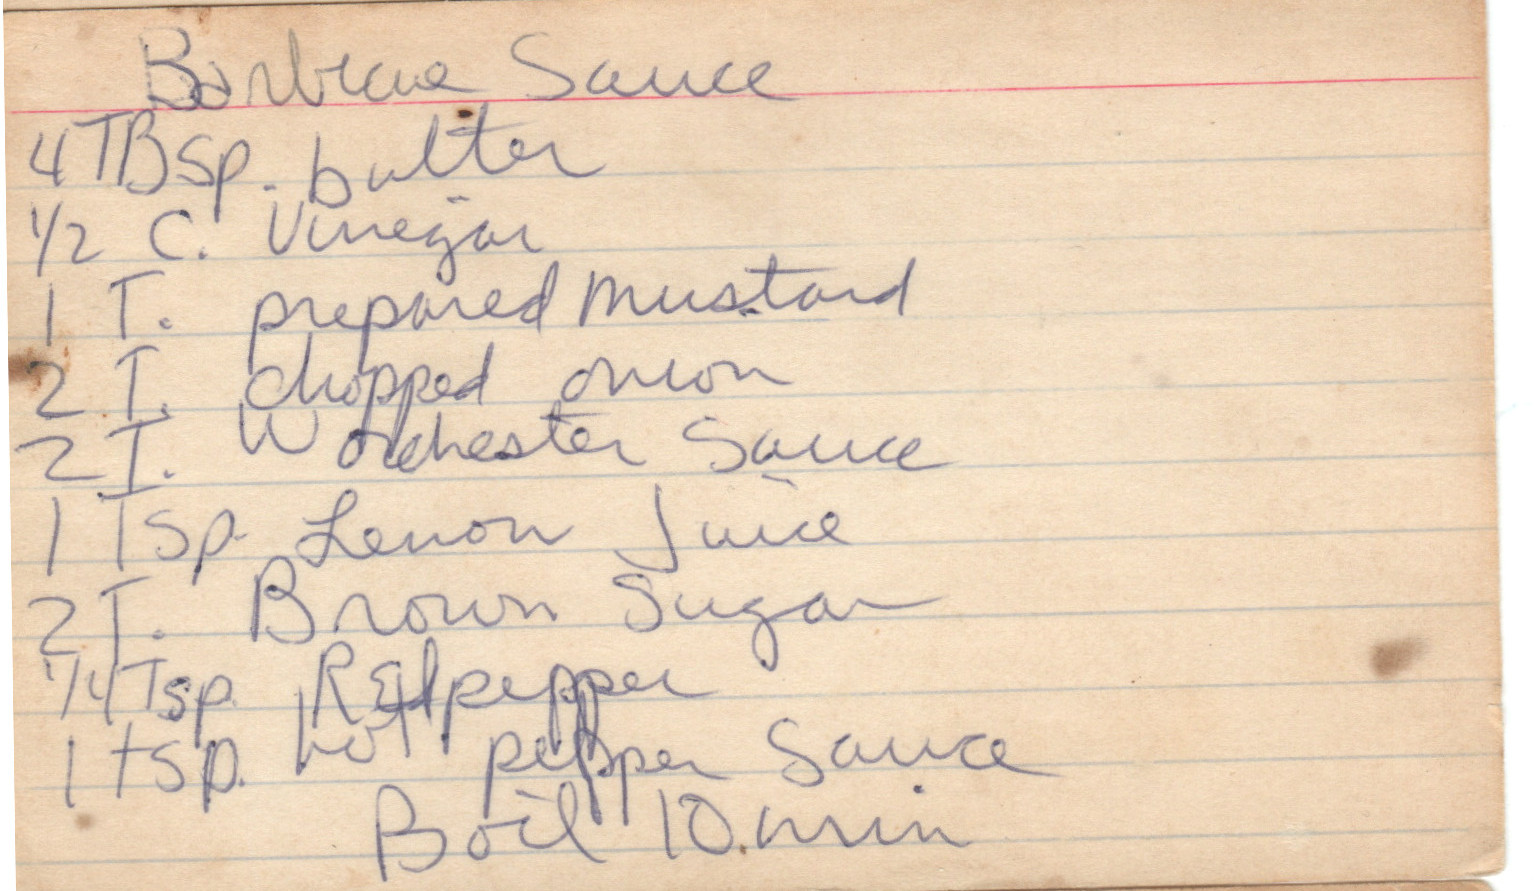 Barbecue Sauce
4 TBsp. butter
1/2 C. Vinegar
1 T. prepared Mustard
2 T. chopped onion
2 T. Worchester Sauce
1 Tsp. Lemon Juice
2 T. Brown Sugar
1/4 Tsp. Red pepper
1 tsp. hot pepper Sauce
Boil 10 min